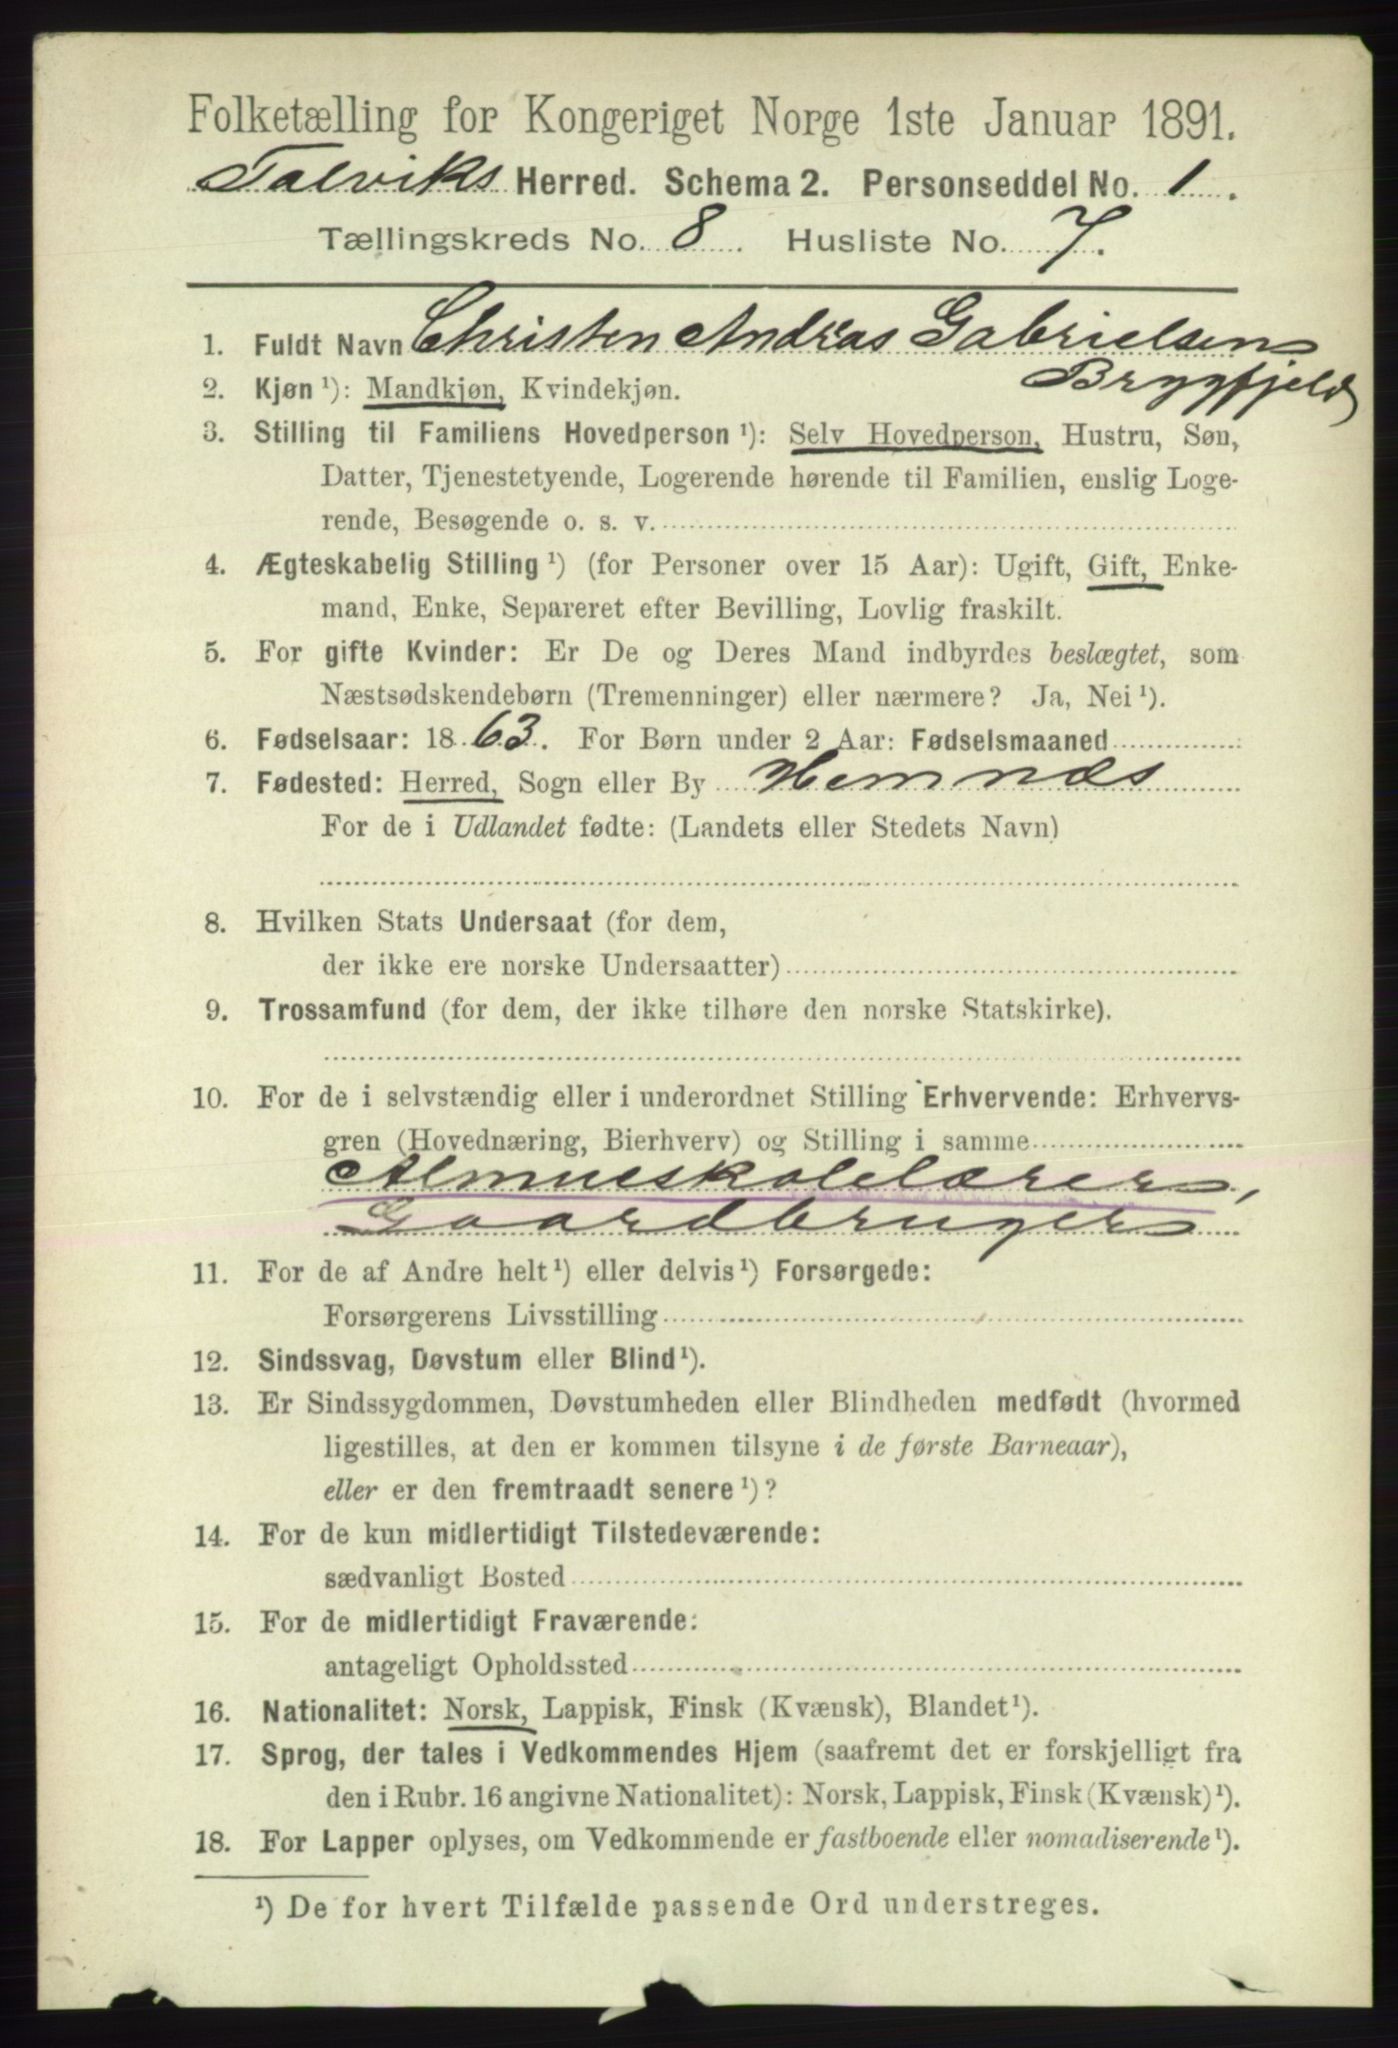 Folketælling for Kongeriget Norge 1ste Januar 1891.
Talviks Herred. Schema 2. Personseddel No. 1.
Tællingskreds No. 8. Husliste No. 7.
1. Fuldt Navn Christen Andreas Gabrielsen
Brygfjeld
2. Kjøn ¹): Mandkjøn, Kvindekjøn.
3. Stilling til Familiens Hovedperson ¹): Selv Hovedperson, Hustru, Søn,
Datter, Tjenestetyende, Logerende hørende til Familien, enslig Loge-
rende, Besøgende o. s. v.
4. Ægteskabelig Stilling ¹) (for Personer over 15 Aar): Ugift, Gift, Enke-
mand, Enke, Separeret efter Bevilling, Lovlig fraskilt.
5. For gifte Kvinder: Er De og Deres Mand indbyrdes beslægtet, som
Næstsødskendebørn (Tremenninger) eller nærmere? Ja, Nei ¹).
6. Fødselsaar: 1863. For Børn under 2 Aar: Fødselsmaaned
7. Fødested: Herred, Sogn eller By Hemnæs
For de i Udlandet fødte: (Landets eller Stedets Navn)
8. Hvilken Stats Undersaat (for dem,
der ikke ere norske Undersaatter)
9. Trossamfund (for dem, der ikke tilhøre den norske Statskirke).
10. For de i selvstændig eller i underordnet Stilling Erhvervende: Erhvervs-
gren (Hovednæring, Bierhverv) og Stilling i samme
Almueskolelærer,
Gaardbruger
11. For de af Andre helt ¹) eller delvis ¹) Forsørgede:
Forsørgerens Livsstilling
12. Sindssvag, Døvstum eller Blind ¹).
13. Er Sindssygdommen, Døvstumheden eller Blindheden medfødt (hvormed
ligestilles, at den er kommen tilsyne i de første Barneaar),
eller er den fremtraadt senere ¹)?
14. For de kun midlertidigt Tilstedeværende:
sædvanligt Bosted
15. For de midlertidigt Fraværende:
antageligt Opholdssted
16. Nationalitet: Norsk, Lappisk, Finsk (Kvænsk), Blandet ¹).
17. Sprog, der tales i Vedkommendes Hjem (saafremt det er forskjelligt fra
den i Rubr. 16 angivne Nationalitet): Norsk, Lappisk, Finsk (Kvænsk) ¹).
18. For Lapper oplyses, om Vedkommende er fastboende eller nomadiserende ¹).
¹) De for hvert Tilfælde passende Ord understreges.